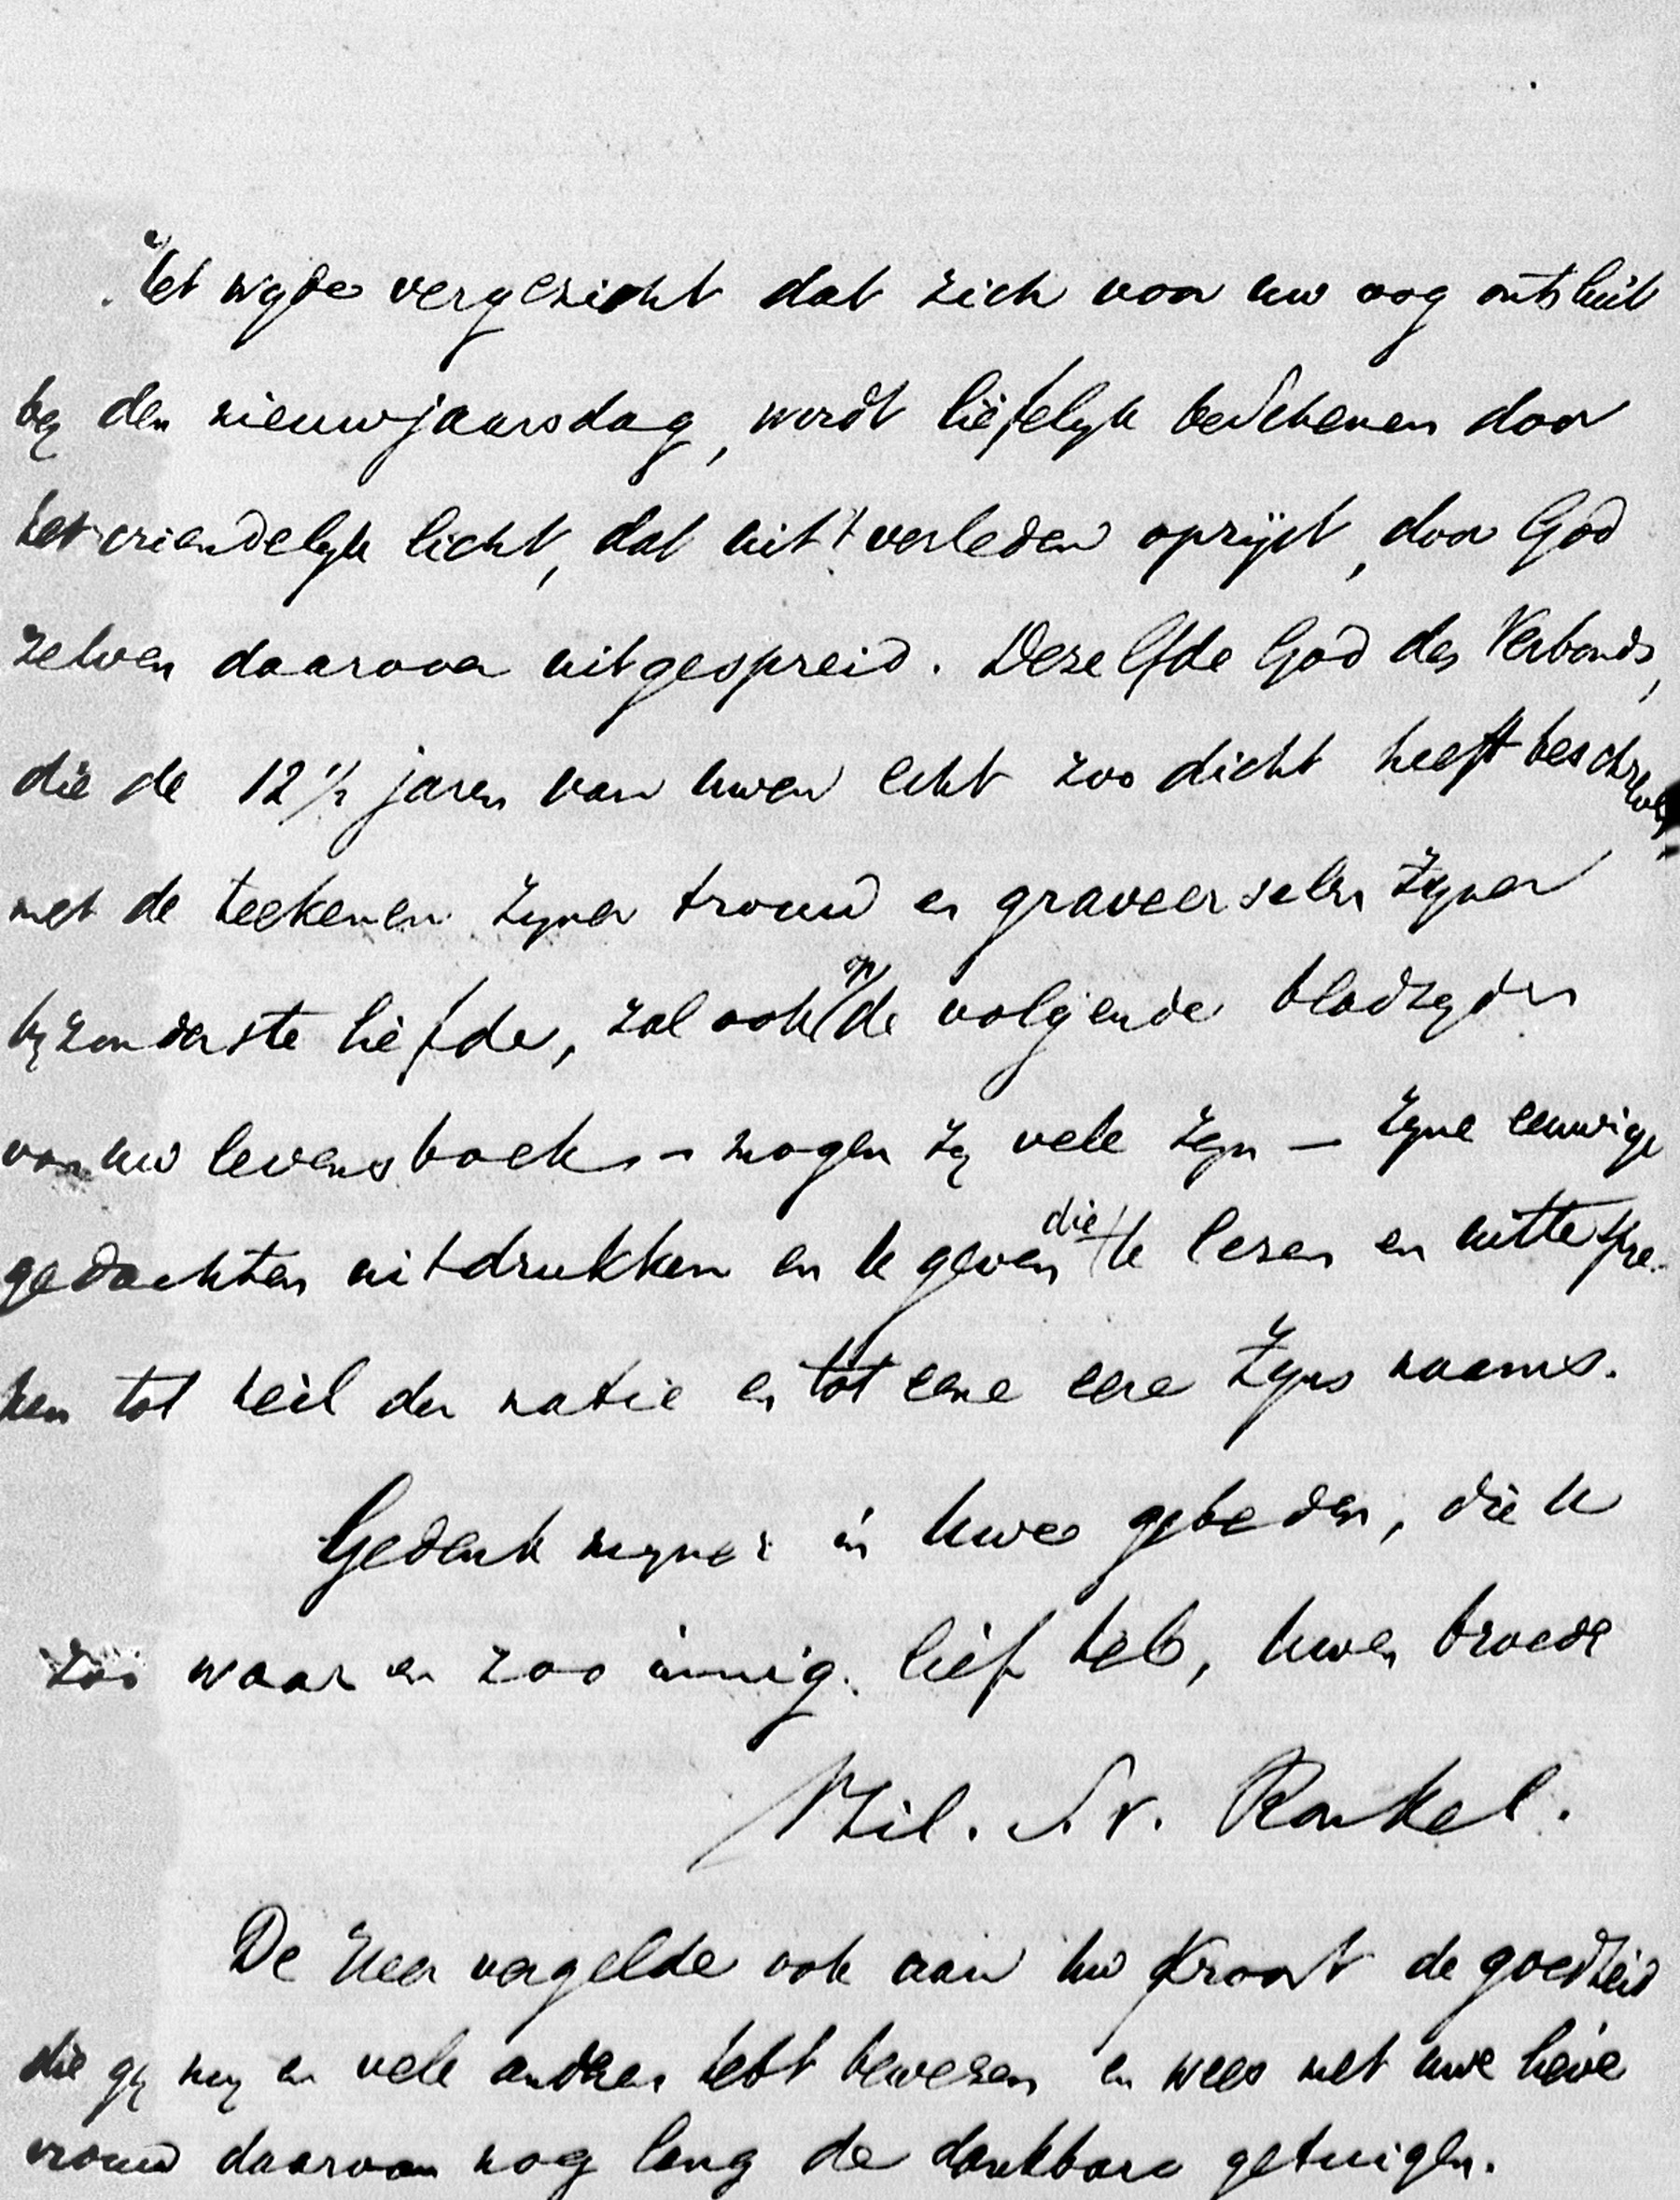 Het wijde vergezicht dat zich voor uw oog ontsluit
bij den nieuwjaarsdag, wordt liefelijk beschenen door
het vriendelijk licht, dat uit 't verleden oprijst, door God
zelven daarover uitgespreid. Dezelfde God des Verbonds,
die de 12 1/2 jaren van uwen echt zoo dicht heeft beschreven
met de teekenen zijner trouw en graveerselen Zijner
bijzonderste liefde, zal ook op de volgende bladzijden
van uw levensboek – mogen zij vele zijn – Zijne eeuwige
gedachten uitdrukken en te geven die te lezen en uit te spre-
ken tot heil der natie en tot eene eere Zijns naams.
Gedenk mijner in uwe gebeden, die u
zoo waar en zoo innig lief heb, uwen broeder
Phil. S. v. Ronkel.
De Heer vergelde ook aan uw kroost de goedheid
die gij mij en vele anderen hebt bewezen en wees met uwe lieve
vrouw daarvan nog lang de dankbare getuigen.